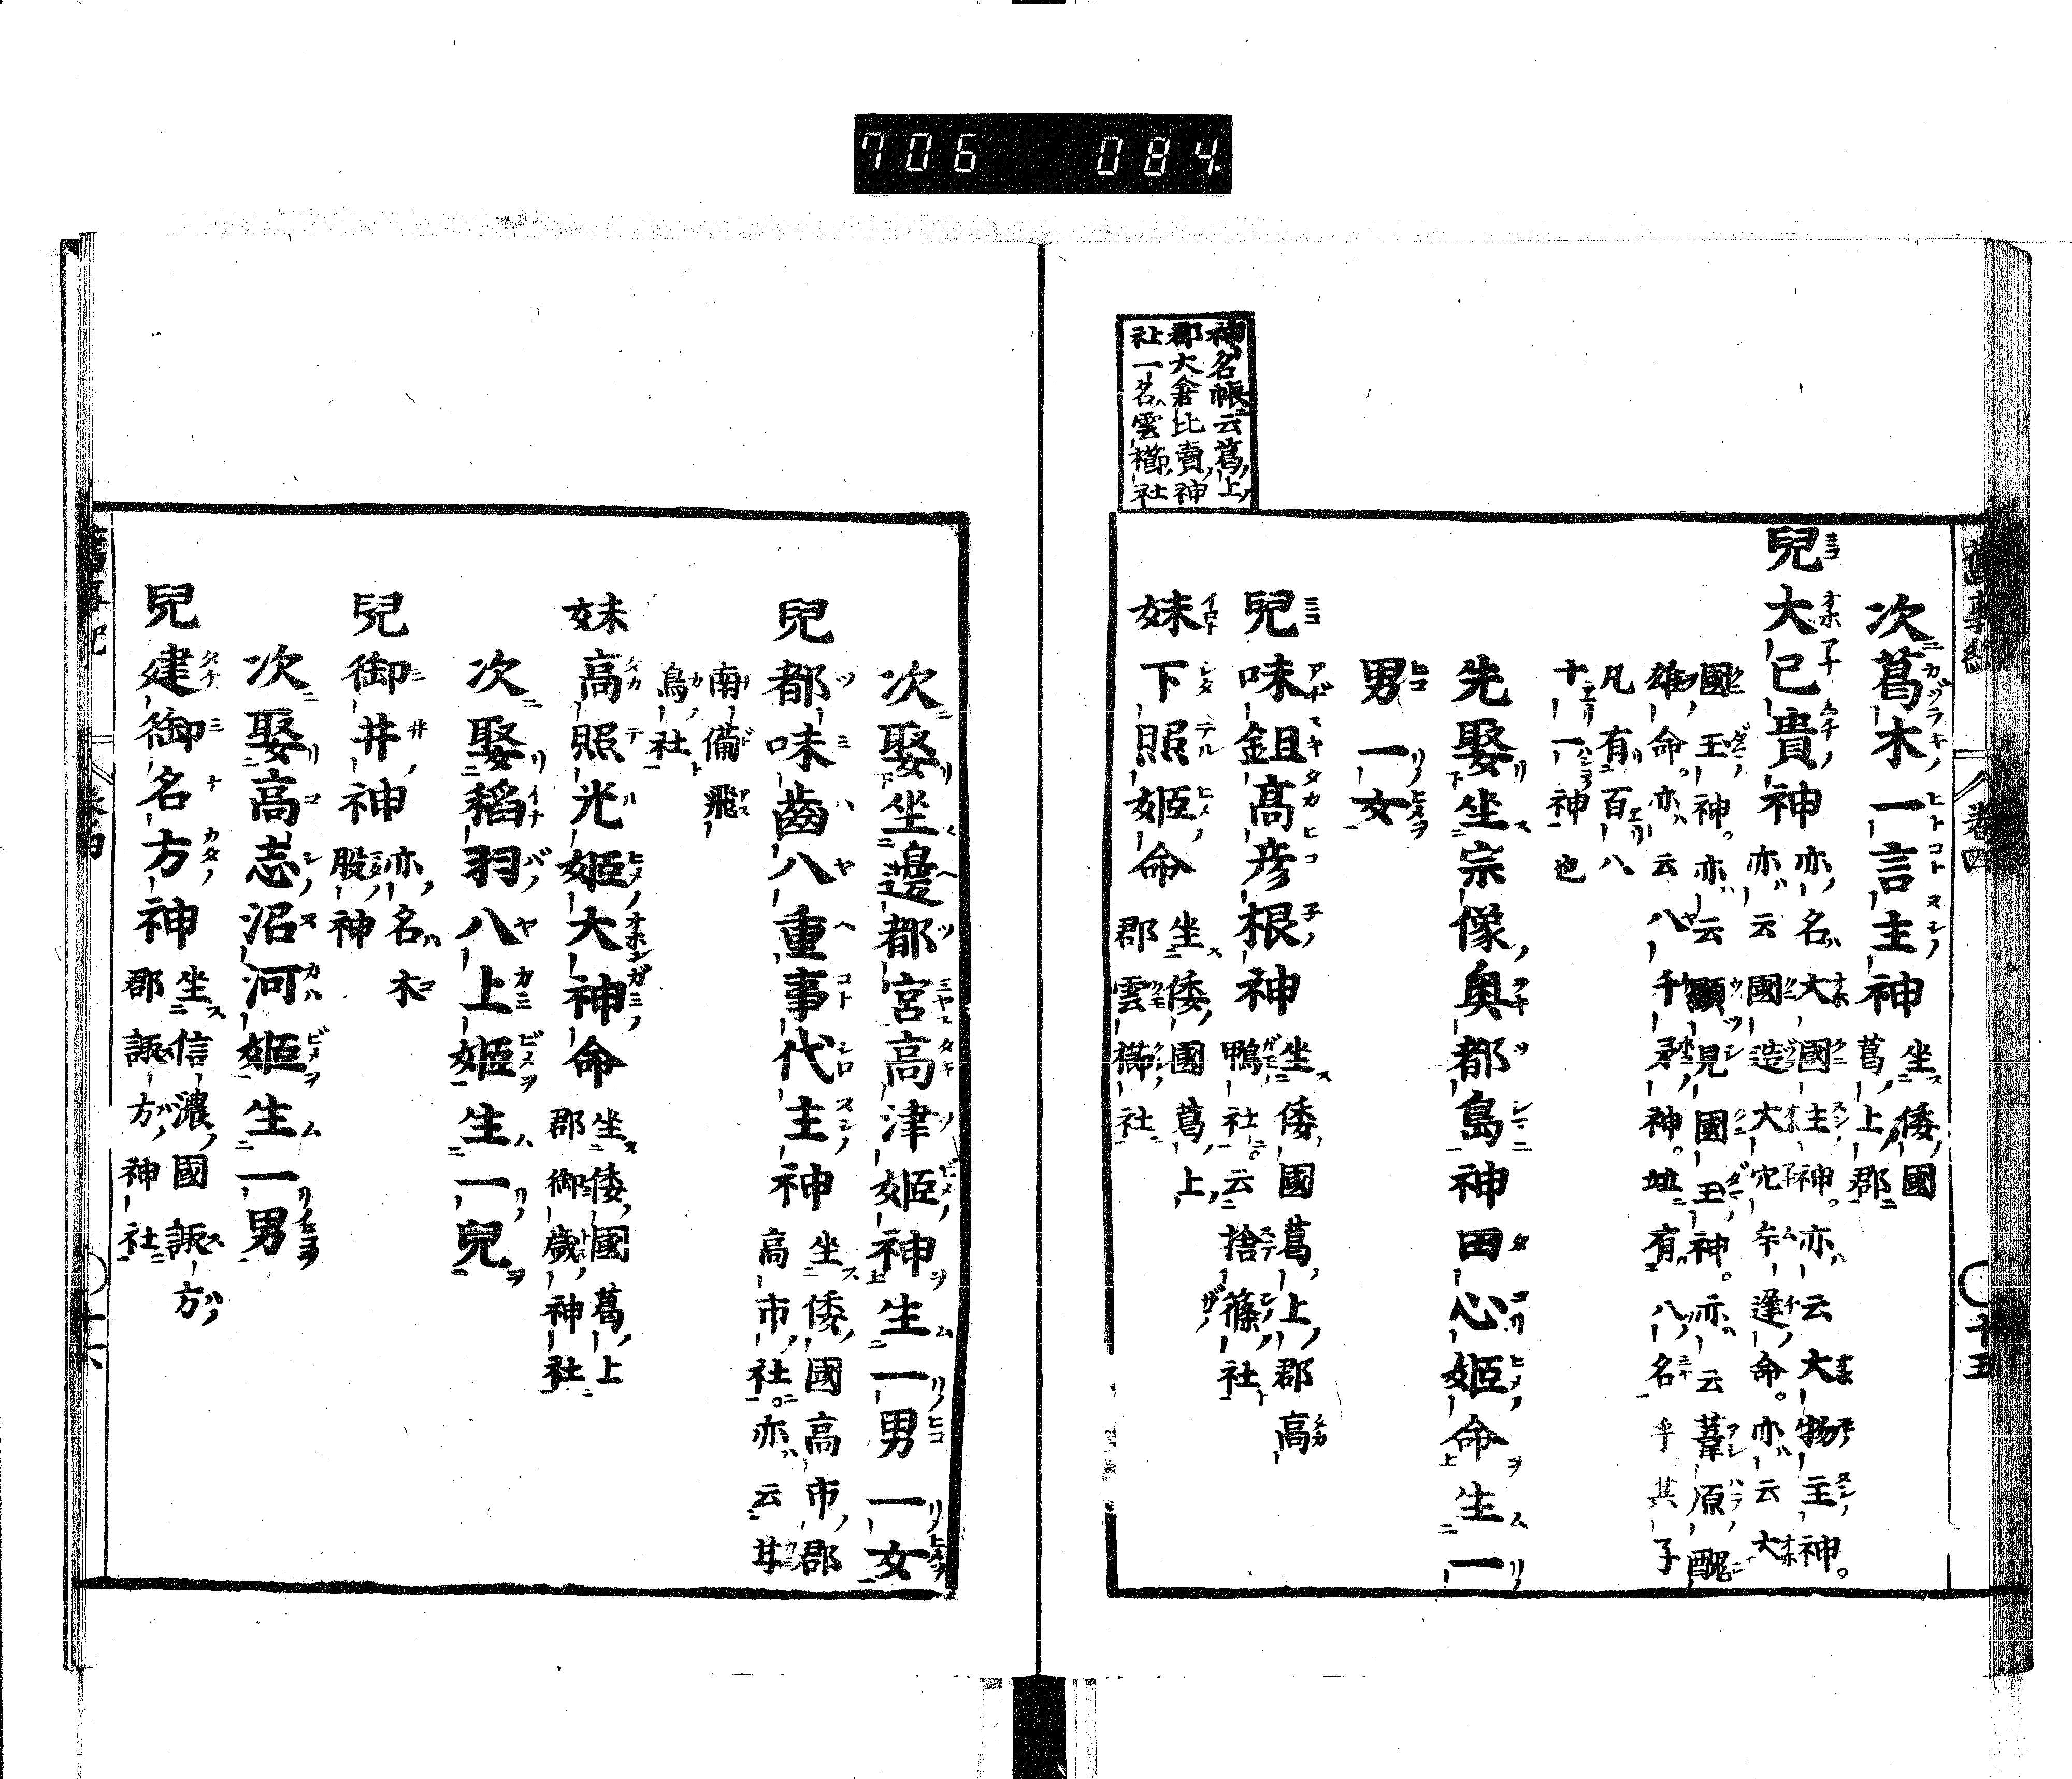 706 084
神名帳云葛上
郡大倉比賣神
社一名雲櫛社
次葛木一言主神 坐倭國
葛上郡
兒大已貴神 亦名大國主神。亦云大物主神。
亦云國造大穴牟遲命。亦云大
國玉神。亦云顯見國玉神。亦云葦原醜
雄命。亦云八千矛神。並有八名乎其子
凡有百八
十一神也
先娶坐宗像奥都島神田心姫命生一
男一女
兒味鉏高彦根神 坐倭國葛上郡高
鴨社。云捨篠社
妹下照姫命 坐倭國葛上
郡雲櫛社
次娶坐邊都宮高津姫神生一男一女
兒都味齒八重事代主神 坐倭國高市郡
高市社。亦云甘
南備飛
鳥社
妹高照光姫大神命 坐倭國葛上
郡御歳神社
次娶稻羽八上姫生一兒
兒御井神 亦名木
股神
次娶高志沼河姫生一男
兒建御名方神 坐信濃國諏方
郡諏方神社
舊事紀 卷四 十五
舊事紀 卷四 十六